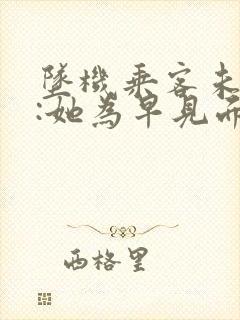 墜機乘客未
:她為早見而
西格里